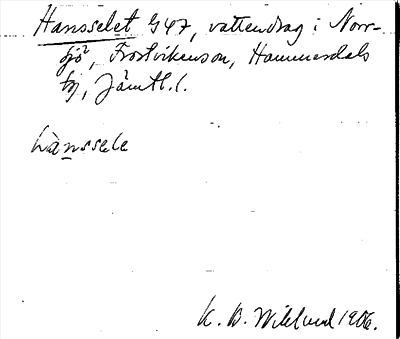 Hansselet G47, vattendrag i Norr-
sjö², Frostvikenson, Hammerdals
tg, Jämtl. l.
hànssele
K. B. Wiklund 1906.